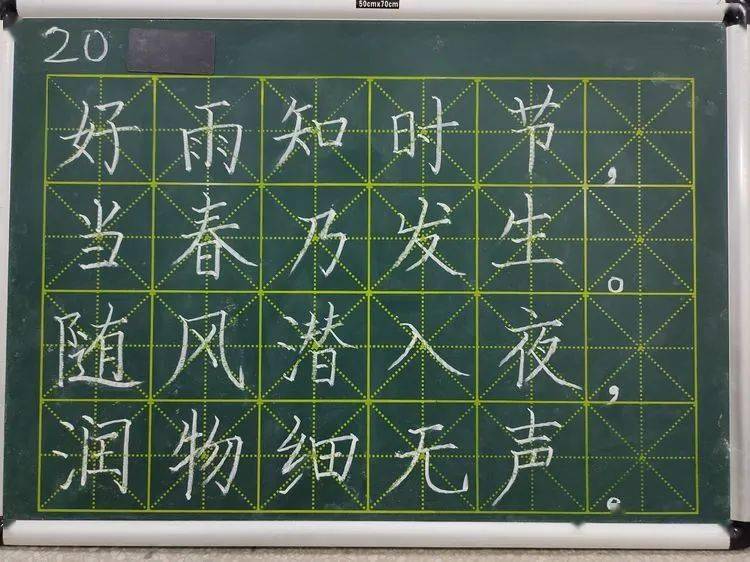 50cmx70cm
20
好雨知时节，
当春乃发生。
随风潜入夜，
润物细无声。